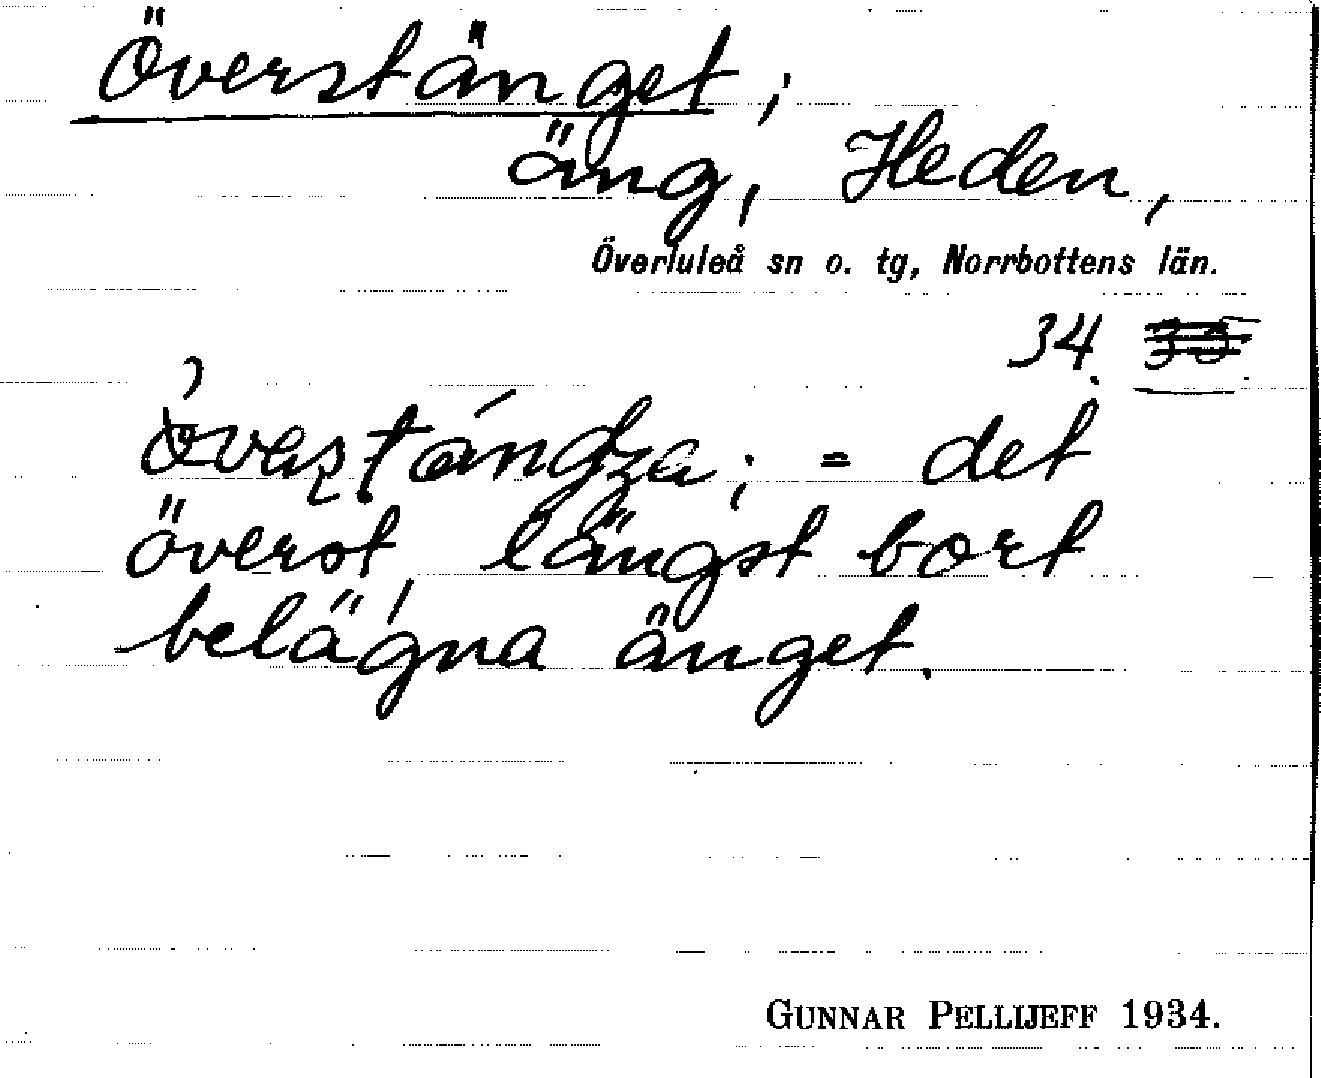 Överstänget;
äng, Heden,
Överluleå sn o. tg, Norrbottens län.
34.
; = det
överst, längst bort
belägna änget.
GUNNAR PELLIJEFF 1934.